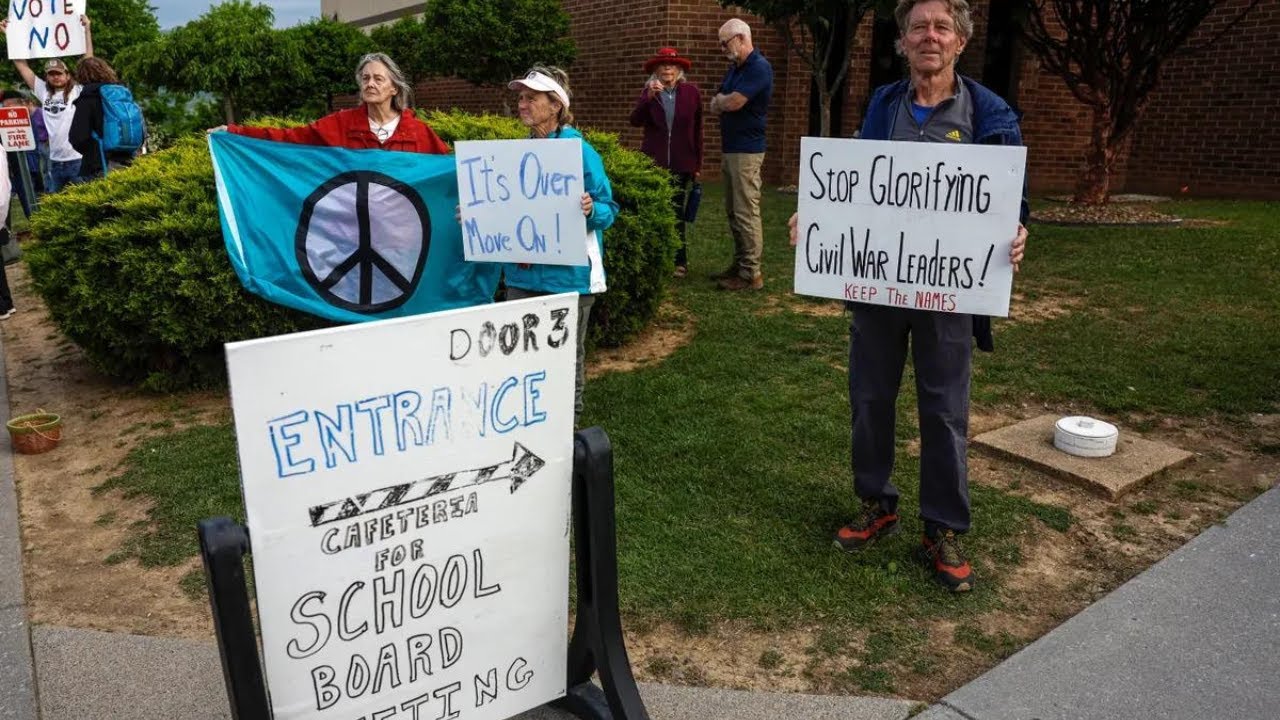 VOTE
NO
NO
PARKING
FIRE
LANE
It's Over
Move On!
Stop Glorifying
Civil War Leaders!
KEEP THE NAMES
DOOR 3
ENTRANCE
CAFETERIA
FOR
SCHOOL
BOARD